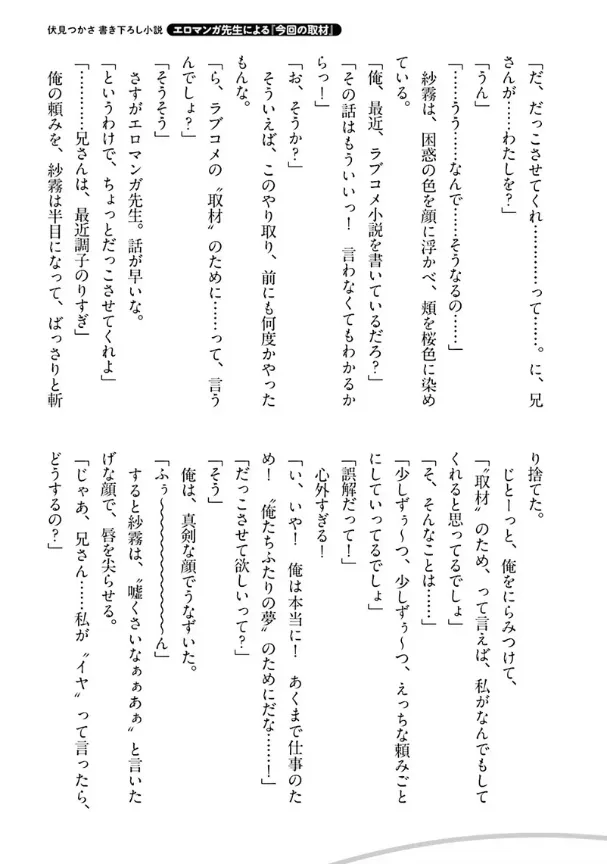 伏見つかさ 書き下ろし小説 エロマンガ先生による『今回の取材』
「だ、だっこさせてくれ…………って……。に、兄
さんが……わたしを？」
「うん」
「……うう……なんで……そうなるの……」
紗霧は、困惑の色を顔に浮かべ、頬を桜色に染め
ている。
「俺、最近、ラブコメ小説を書いているだろ？」
「その話はもういいっ！　言わなくてもわかるか
らっ！」
「お、そうか？」
そういえば、このやり取り、前にも何度かやった
もんな。
「ら、ラブコメの〝取材〟のために……って、言う
んでしょ？」
「そうそう」
さすがエロマンガ先生。話が早いな。
「というわけで、ちょっとだっこさせてくれよ」
「…………兄さんは、最近調子のりすぎ」
俺の頼みを、紗霧は半目になって、ばっさりと斬
り捨てた。
じとーっと、俺をにらみつけて、
「〝取材〟のため、って言えば、私がなんでもして
くれると思ってるでしょ」
「そ、そんなことは……」
「少しずぅ〜つ、少しずぅ〜つ、えっちな頼みごと
にしていってるでしょ」
「誤解だって！」
心外すぎる！
「い、いや！　俺は本当に！　あくまで仕事のた
め！　〝俺たちふたりの夢〟のためにだな……！」
「だっこさせて欲しいって？」
「そう」
俺は、真剣な顔でうなずいた。
「ふぅ〜〜〜〜〜〜〜〜ん」
すると紗霧は、〝嘘くさいなぁぁあぁ〟と言いた
げな顔で、唇を尖らせる。
「じゃあ、兄さん……私が〝イヤ〟って言ったら、
どうするの？」